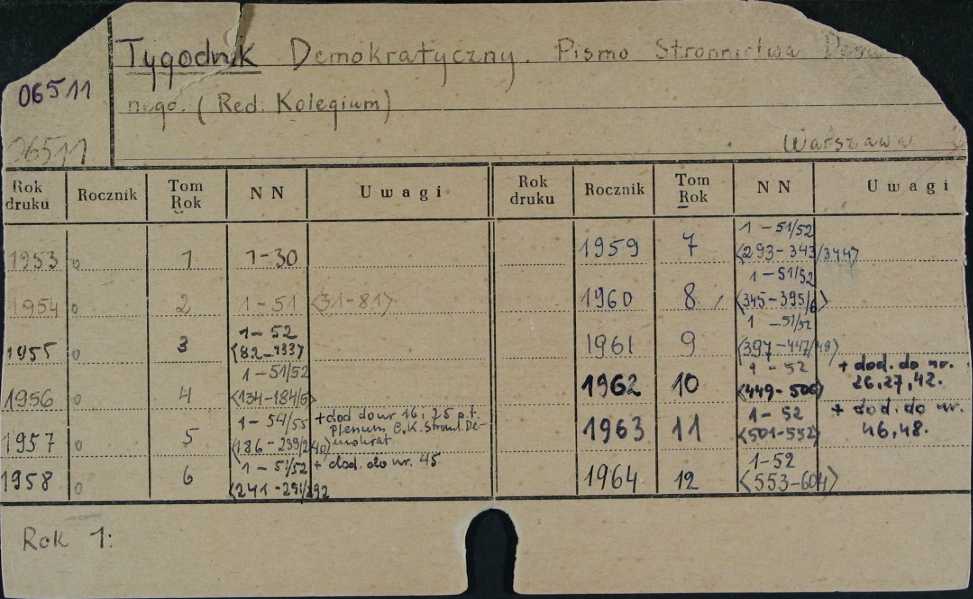 Tygodnik Demokratyczny. Pismo Stronnictwa
06511
nego. (Red: Kolegium)
06511
Warszawa
Rok druku Rocznik Tom Rok NN Uwagi Rok druku Rocznik Tom Rok NN Uwagi
1953 0 1 1-30
1954 0 2 1-51 <31-81>
1955 0 3 1-52 <82-133>
1956 0 4 1-51/52 <134-184/5>
1957 0 5 1-54/55 <186-239/240> +dod do nr 16, 25 p.t. Plenum C.K. Stronn. De-mokrat.
1958 0 6 1-51/52 <241-291/292 + dod. do nr. 45
1959 7 1-51/52 <293-343/344>
1960 8 1-51/52 <345-395/6>
1961 9 1-51/52 <397-447/48>
1962 10 1-52 <449-500> + dod. do nr. 26,27,42.
1963 11 1-52 <501-552> + dod. do nr. 46,48.
1964 12 1-52 <553-604>
Rok 1: